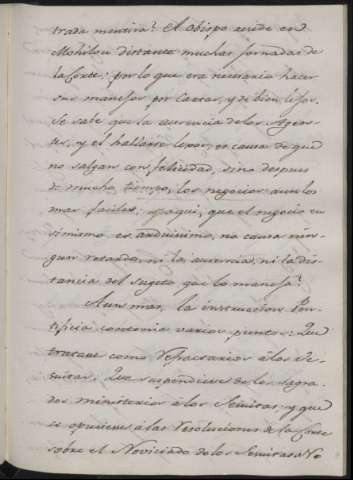 trada mentira? El obispo reside en
Mohilou distante muchas jornadas de
la Corte; por lo que era necesario hacer
sus manejos por Cartas, y de bien lejos.
Se sabe que la ausencia de los Agen-
tes, y el hallarse lejos, es causa de que
no salgan con felicidad, sino despues
de mucho tiempo, los negocios aun los
mas faciles, y aqui, que el negocio en
si mismo es arduisimo, no causa nin-
gun retardo, ni la ausencia, ni la dis-
tancia del sugeto que lo maneja?
Aun mas, la instruccion Pon-
tificia contenia varios puntos: Que
tratase como Refractarios à los Je-
suitas. Que suspendiese de los sagra-
dos ministerios à los Jesuitas, y que
se opusiese à las Resoluciones de la Corte
sobre el Noviciado de los Jesuitas. Yo